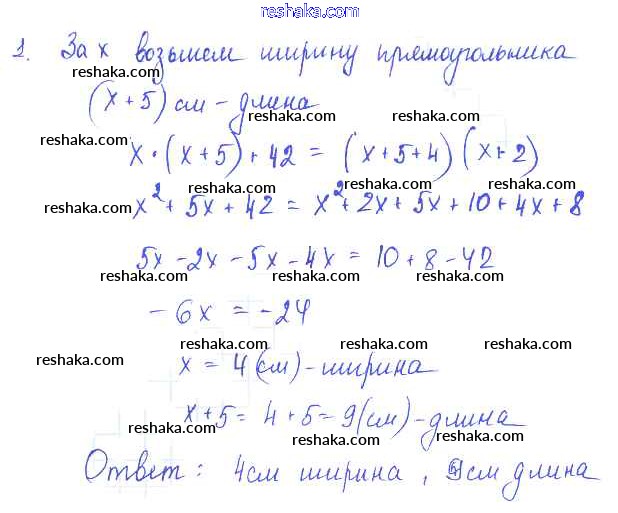 reshaka.com
1. За x возьмем ширину прямоугольника
reshaka.com reshaka.com reshaka.com
(x+5) см - длина
reshaka.com reshaka.com reshaka.com
x·(x+5)+42 = (x+5+4)(x+2)
reshaka.com reshaka.com reshaka.com
x²+5x+42 = x²+2x+5x+10+4x+8
5x-2x-5x-4x = 10+8-42
reshaka.com reshaka.com reshaka.com
-6x = -24
reshaka.com reshaka.com reshaka.com
x = 4(см) - ширина
reshaka.com reshaka.com reshaka.com
x+5 = 4+5=9(см) - длина
reshaka.com reshaka.com reshaka.com
Ответ: 4см ширина, 9см длина
reshaka.com reshaka.com reshaka.com